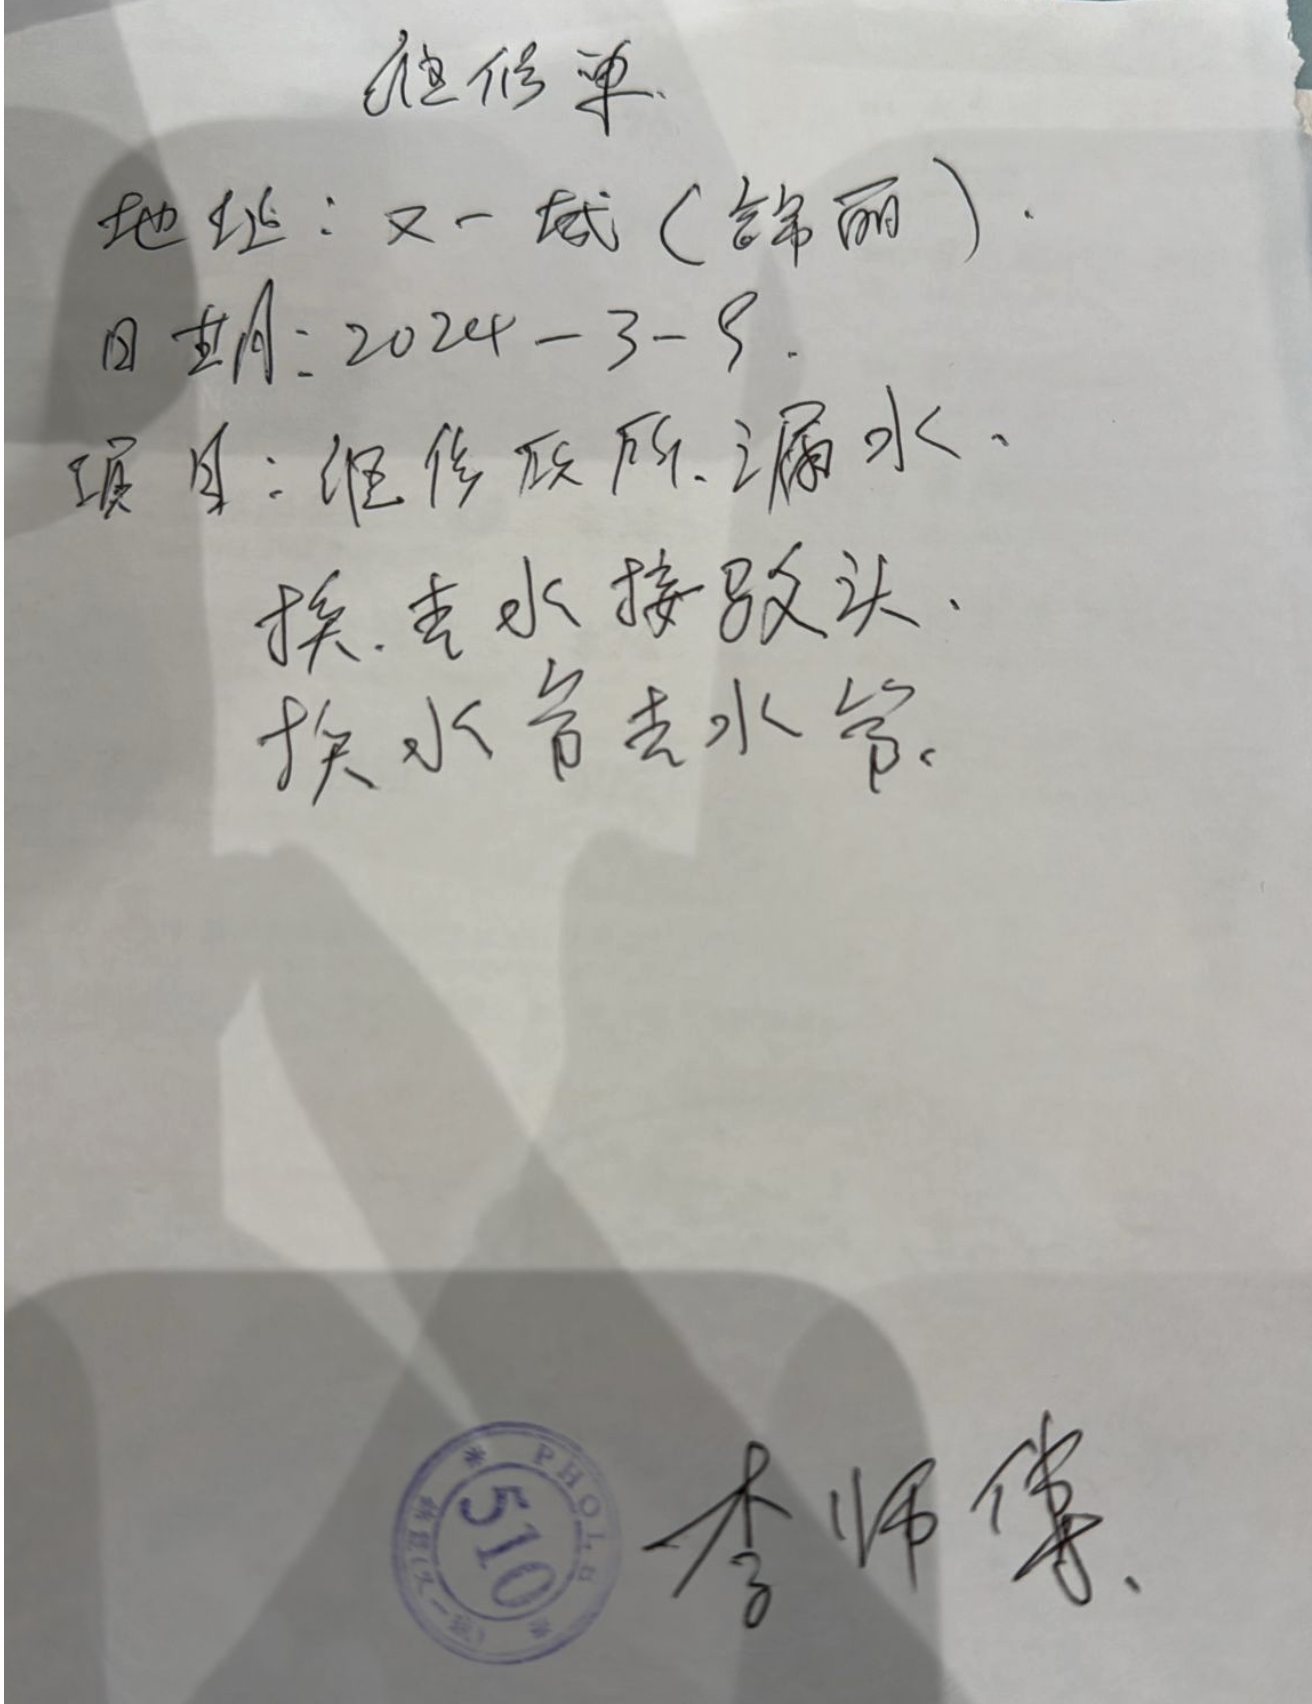 维修单.
地址：又一城（錦丽）.
日期：2024-3-5.
项目：维修厕所.漏水、
换.去水接驳头、
换水管去水管.
* PHO
510
李师傅.